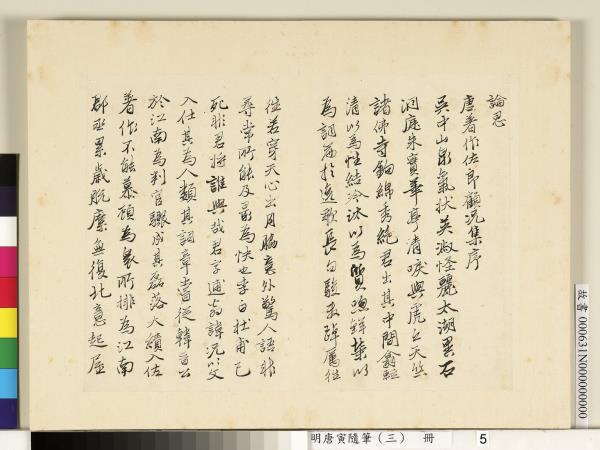 論思
唐著作佐郎顧況集序
吳中山泉氣狀英淑怪麗太湖異石
洞庭朱實華亭清唳與虎丘天竺
諸佛寺鉤綿秀絶君出其中間翕輕
清以為性結泠汰以為質煦鮮榮以
為詞偏於逸歌長句駿發踔厲往
往若穿天心出月脇意外驚人語非
尋常所能及最為快也李白杜甫已
死非君將誰與哉君字逋翁諱況以文
入仕其為人類其詞章嘗從韓晉公
於江南為判官驟成其磊落大績入佐
著作不能慕頑為衆所排為江南
郡丞累歲脱縻無復北意起屋
故書 000631N000000000
明唐寅隨筆（三）　冊　5